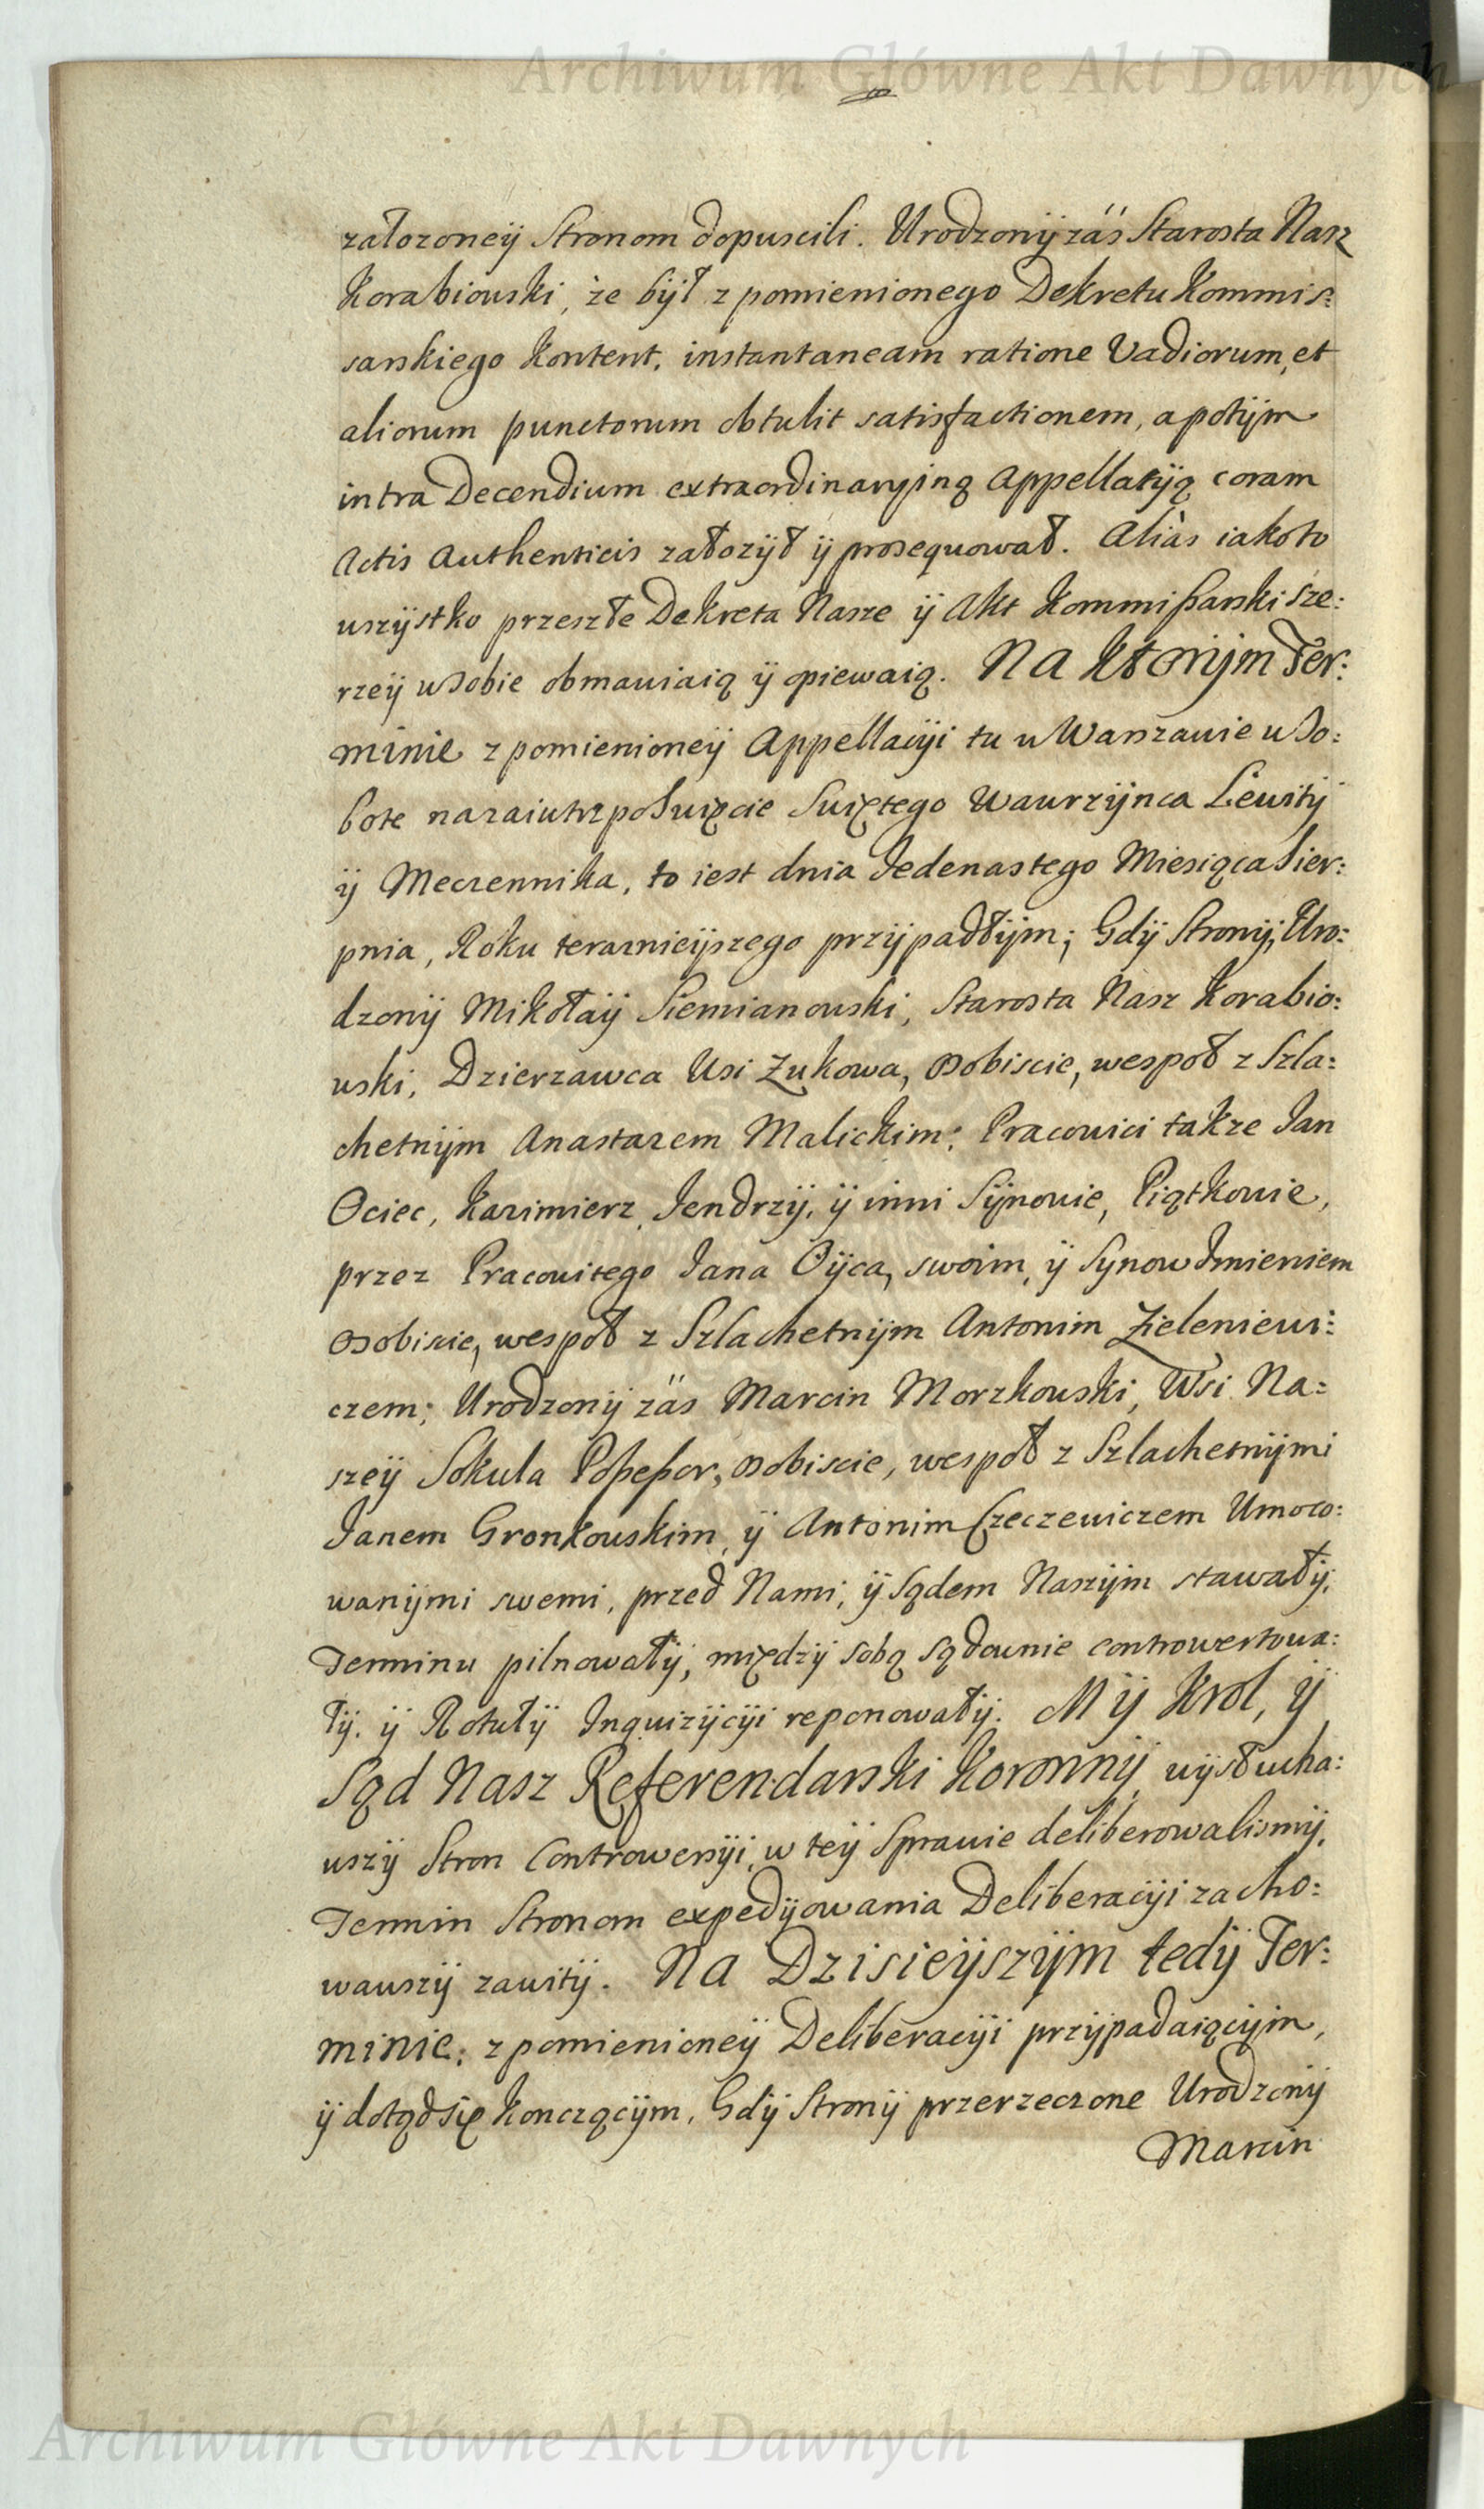 Archiwum Główne Akt Dawnych
załozoneÿ Stronom dopuscili. Urodzonÿ zás Starosta Nasz
Korabiowski, że bÿł z pomienionego Dekretu Kommis:
sarskiego Kontent, instantaneam ratione Vadiorum, et
aliorum punctorum obtulit satisfactionem, a potÿm
intra Decendium extraordinarÿiną Appellatÿą coram
Actis Authenticis załozÿł ÿ prosequował. Aliàs iako to
wszÿstko przeszłe Dekreta Nasze ÿ Akt Kommißarski sze:
rzeÿ w Sobie obmawiaią ÿ opiewaią. Na Ktorÿm Ter:
minie z pomienioneÿ Appellacÿi tu w Warszawie w So:
bote nazaiutrz po Swięcie Swiętego Wawrzÿnca Lewitÿ
ÿ Meczennika, to iest dnia Jedenastego Miesiąca Sier:
pnia, Roku teraznieÿszego przÿpadłÿm; Gdÿ Stronÿ, Uro:
dzonÿ Mikołaÿ Siemianowski, Starosta Nasz Korabio:
wski, Dzierzawca Wsi Zukowa, osobiscie, wespoł z Szla:
chetnÿm Anastazem Malickim; Pracowici takze Jan
Ociec, Kazimierz, Jendrzÿ, ÿ inni Sÿnowie, Piątkowie,
przez Pracowitego Jana Oÿca, swoim, ÿ Synow Imieniem
osobiscie, wespoł z Szlachetnÿm Antonim Zieleniewi:
czem; Urodzonÿ zás Marcin Morzkowski, Wsi Na:
szeÿ Sokula Poßeßor, osobiscie, wespoł z Szlachetnÿmi
Janem Gronkowskim, ÿ Antonim Czeczewiczem Umoco:
wanÿmi swemi, przed Nami, ÿ Sądem Naszÿm stawałÿ,
Terminu pilnowałÿ, międzÿ sobą sądownie controwertowa:
łÿ, ÿ Rotułÿ Inquizÿcÿi reponowałÿ. Mÿ Krol, ÿ
Sąd Nasz Referendarski Koronnÿ, wÿsłucha:
wszÿ Stron Controwersÿi, w teÿ Sprawie deliberowalismÿ,
Termin Stronom expedÿowania Deliberacÿi zacho:
wawszÿ zawitÿ. Na Dzisieÿszÿm tedÿ Ter:
minie, z pomienioneÿ Deliberacÿi przÿpadaiącÿm,
ÿ dotąd się Konczącÿm, Gdÿ Stronÿ przerzeczone Urodzonÿ
Marcin
Archiwum Główne Akt Dawnych